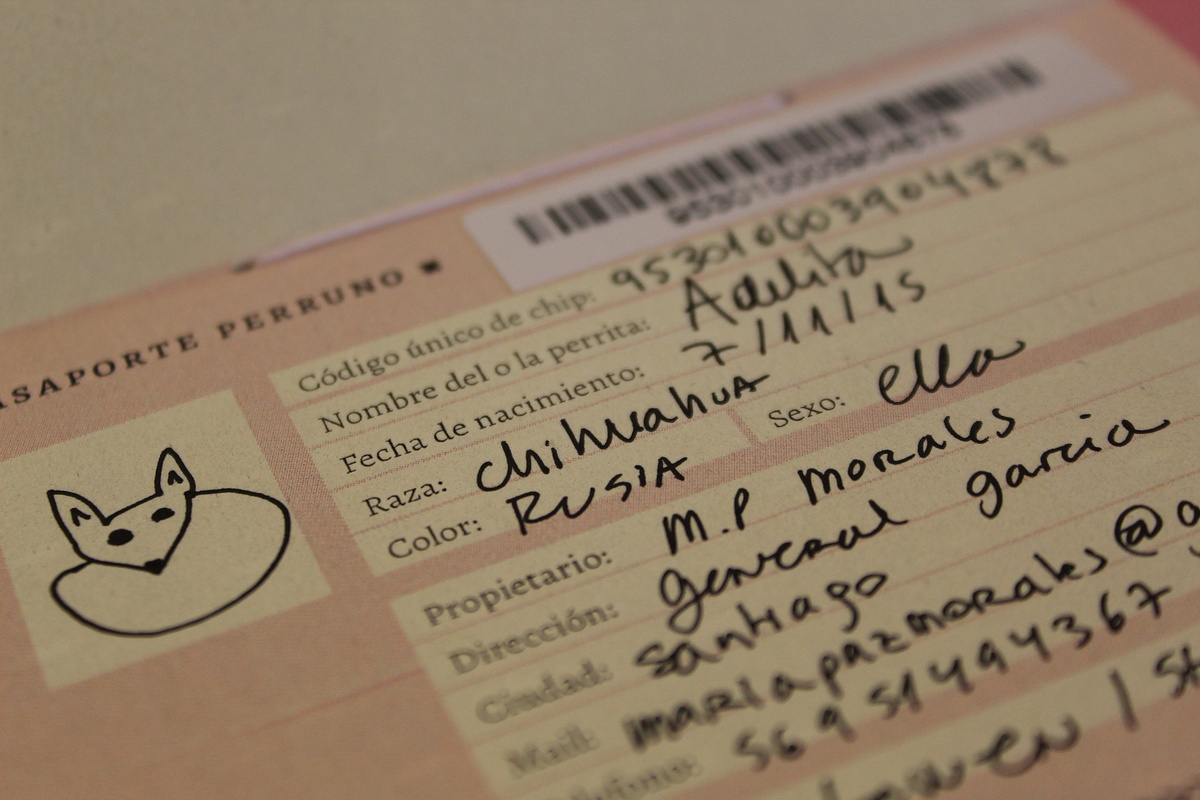 ASAPORTE PERRUNO
Código único de chip: 953010003904878
Nombre del o la perrita: Adelita
Fecha de nacimiento: 7/11/15
Raza: chihuahua
Sexo: ella
Color: Rusia
Propietario: M.P morales
Dirección: general garcia
Ciudad: santiago
Mail: mariapazmorales@
569 51494367